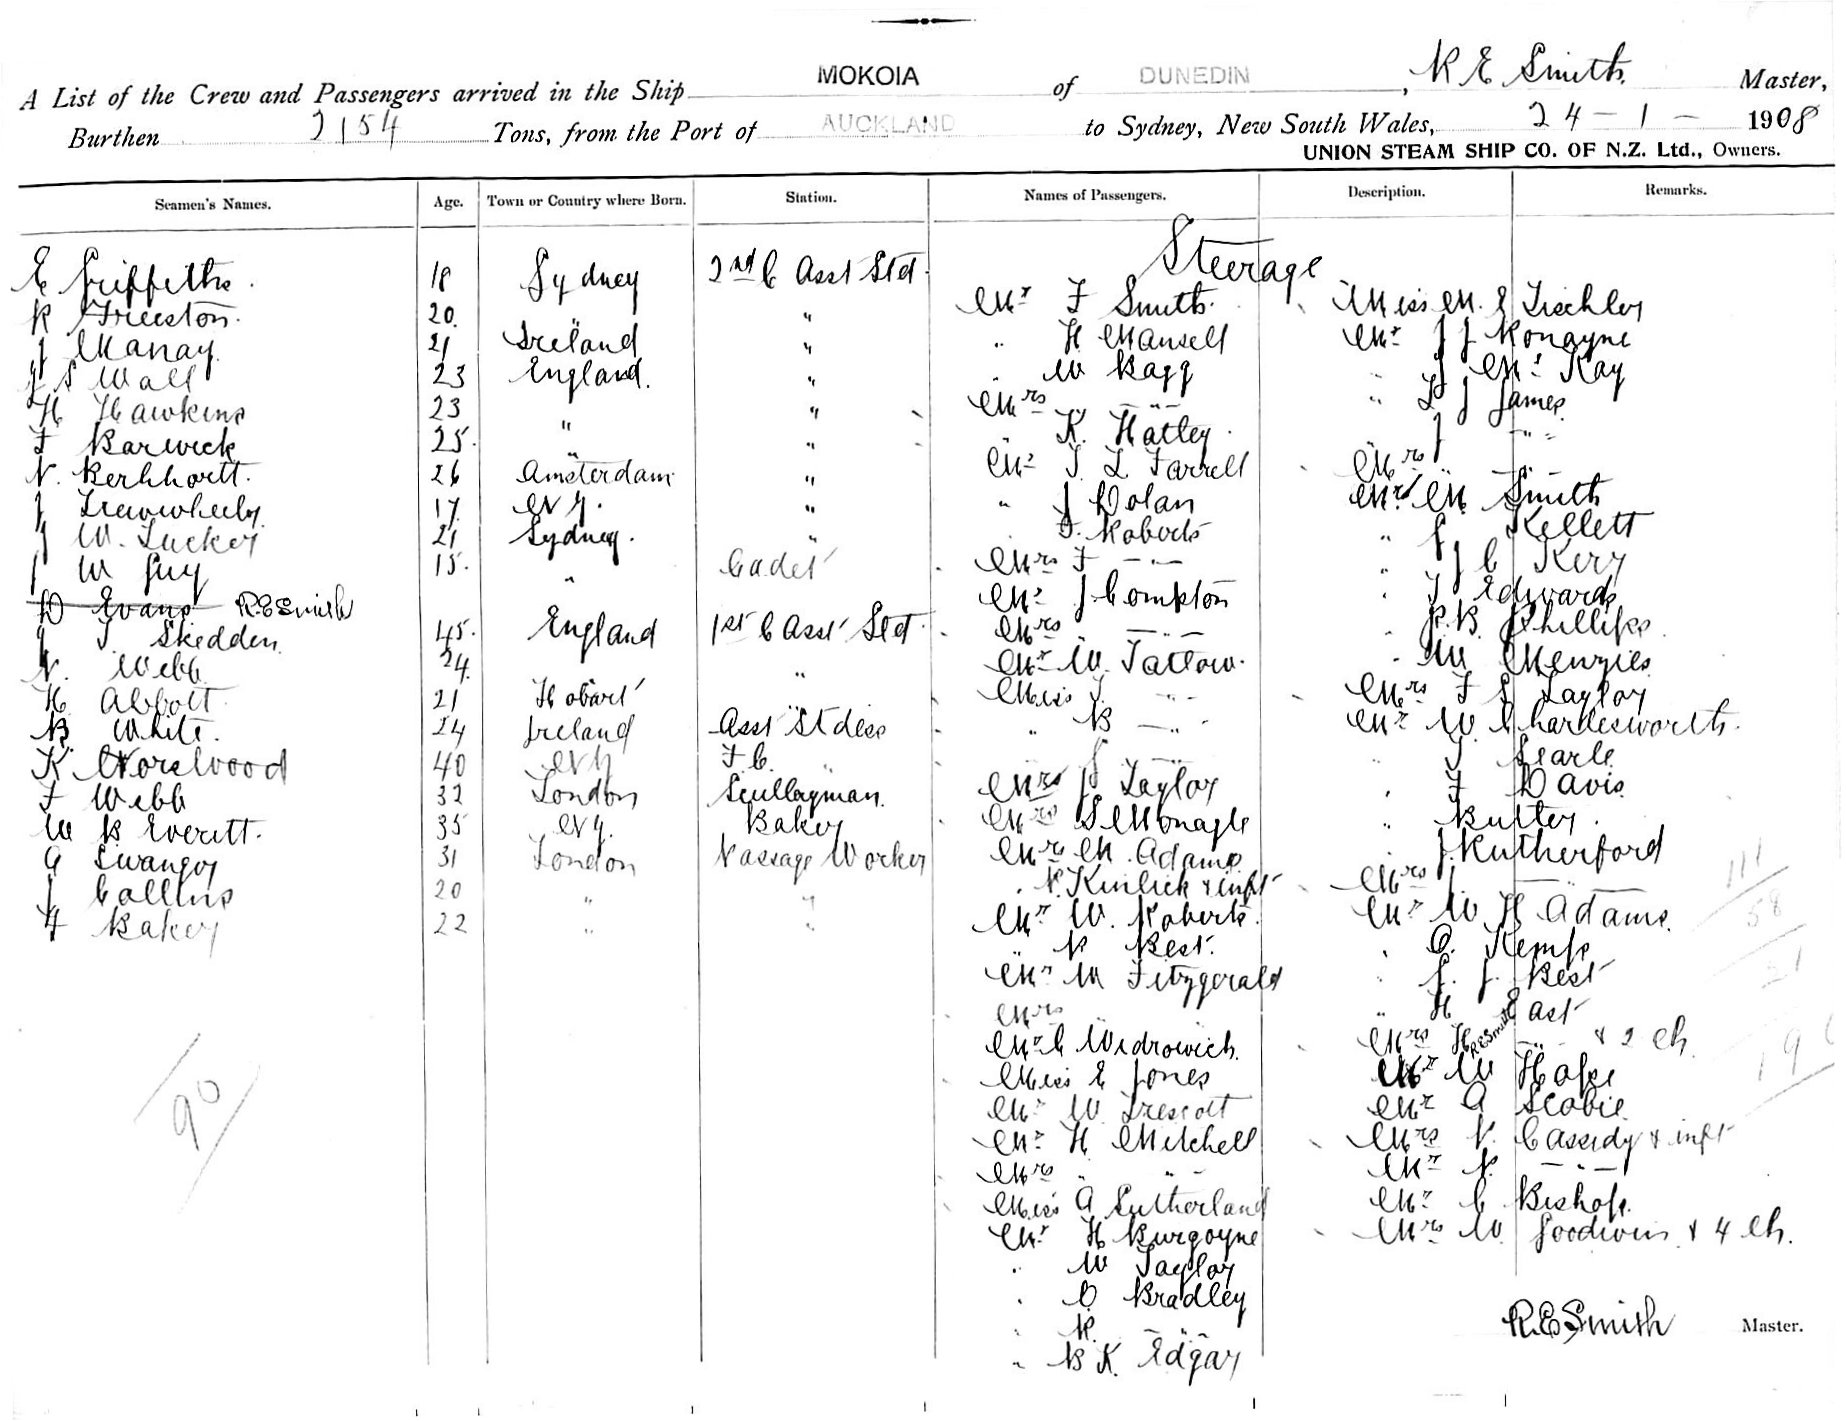 A List of the Crew and Passengers arrived in the Ship MOKOIA of DUNEDIN, R E Smith Master,
Burthen 2154 Tons, from the Port of AUCKLAND to Sydney, New South Wales, 24 - 1 - 1908
UNION STEAM SHIP CO. OF N.Z. Ltd., Owners.
Seamen's Names. Age. Town or Country where Born. Station. Names of Passengers. Description. Remarks.
E Griffiths. 18 Sydney 2nd C Asst Std.
R Freeston. 20. " "
J Manay. 21 Ireland "
J S Wall 23 England. "
H Hawkins 23 " "
F Barwick 25. " "
N. Berkhoett. 26 Amsterdam "
J 17 N Z. "
J W. Tucker 21 Sydney. "
J W Guy 15. " Cadet
D Evans R.E Smith
J T. Skedden 45. England 1st C Asst Std.
N. Webb 24. " "
H. Abbott 21 Hobart "
B White. 24 Ireland Asst Stdess
K Norswood 40 N Z F C. "
F Webb 32 London Scullayman.
W B Everitt. 35 N Z. Baker
A Swanger 31 London Passage Worker
J Collins 20 " "
F Baker 22 " "
90
Steerage
Mr F Smith.
" H Mansell
" W Bagg
Mrs " — " —
" K. Hatley.
Mr T. L Farrell
" J Dolan
" T. Roberts
Mrs F — " —
Mr J Compton
Mrs — " —
Mr W. Tatlow.
Miss T. — " —
" B — " —
" J — " —
Mrs J Taylor
Mrs S Monagle
Mrs M. Adams
" P. Kinlick & inft
Mr W. Roberts.
" R Best.
Mr M Fitzgerald
Mrs "
Mr C Widrowich.
Miss E Jones
Mr W Trescott
Mr H Mitchell
Mrs " — " —
Miss A Sutherland
Mr H Burgoyne
" W Taylor
" C Bradley
" R. — " —
" B K. Edgar
Miss M. E Tischler
Mr J J Ronayne
" J McKay
" L J James
" J — " —
Mrs " — " —
Mr M Smith
" J Kellett
" J C Kerr
" T Edwards
" P. B. Phillips
" W Menzies
Mrs F S Taylor
Mr W. Charlesworth.
" T Searle
" F Davis
" Butler.
" J. Rutherford
Mrs J. — " —
Mr W H Adams.
" C. Kemp
" J. J. Best
" H East
Mrs H R.E Smith — " — & 2 Ch.
Mr W Hope
Mr A Scobie
Mrs N. Cassidy & inft
Mr N. — " —
Mr C Bishop.
Mrs W. Goodwin & 4 Ch.
111
58
21
19
R.E Smith Master.